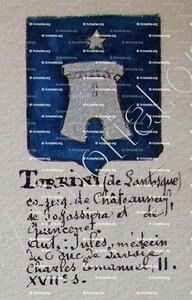 TORRINI (de Lantosque)
co-seig. de Châteauneuf,
de et de
Quincenet
Aut.: Jules, médecin
du Duc de Savoie
Charles Emanuel, II.
XVIIe s.